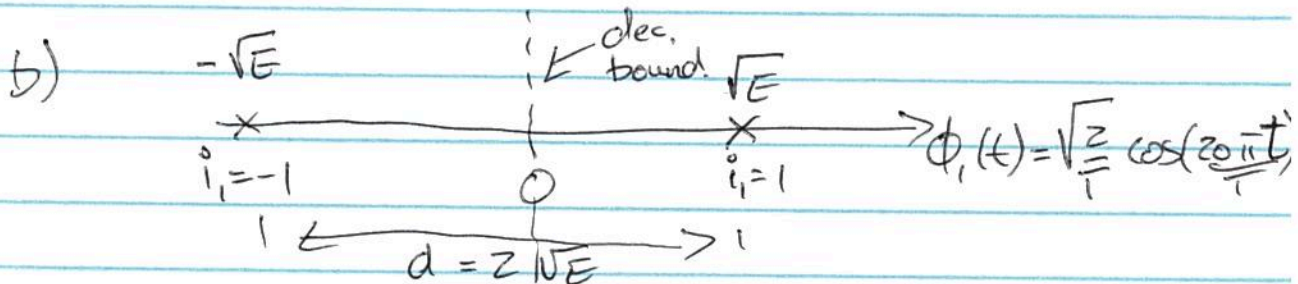 b) -√E dec. bound. √E
i₁=-1 0 i₁=1 ϕ₁(t)=√(2/T) cos(20πt/T)
d = 2√E